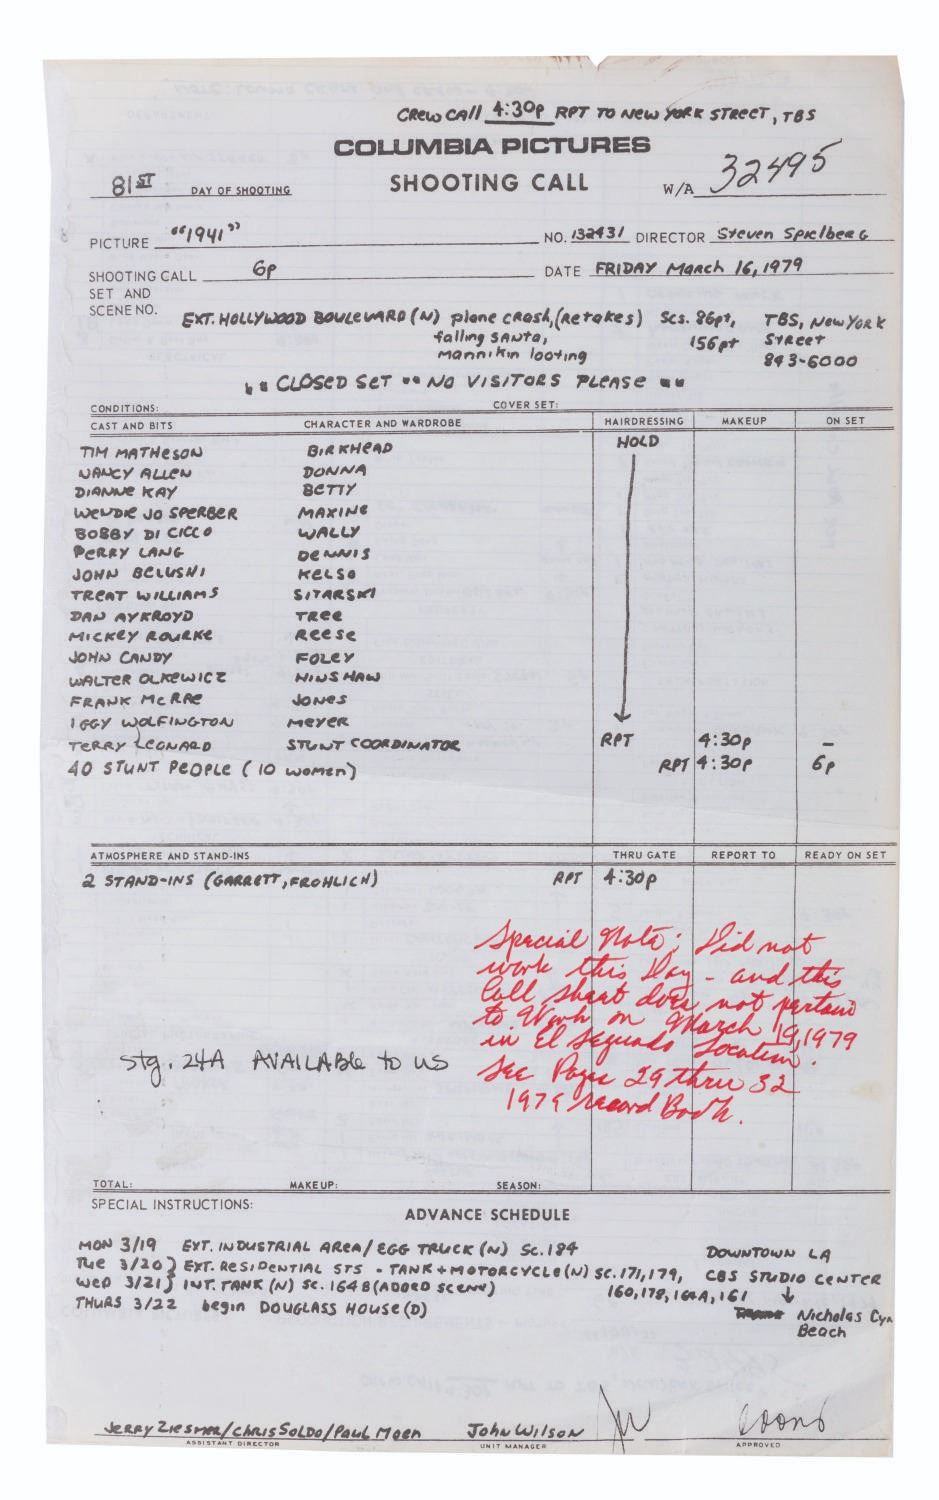 CREW CALL 4:30p RPT TO NEW YORK STREET, TBS
COLUMBIA PICTURES
81ST DAY OF SHOOTING SHOOTING CALL W/A 32495
PICTURE "1941" NO. 132431 DIRECTOR Steven Spielberg
SHOOTING CALL 6p DATE FRIDAY March 16, 1979
SET AND
SCENE NO.
EXT. HOLLYWOOD BOULEVARD (N) plane crash, (Retakes) Scs. 86pt, TBS, New York
falling SANTA, 156pt Street
mannikin looting 843-6000
" " CLOSED SET " " NO VISITORS PLEASE " "
CONDITIONS: COVER SET:
CAST AND BITS CHARACTER AND WARDROBE HAIRDRESSING MAKEUP ON SET
TIM MATHESON BIRKHEAD HOLD
NANCY ALLEN DONNA
DIANNE KAY BETTY
WENDIE JO SPERBER MAXINE
BOBBY DI CICCO WALLY
PERRY LANG DENNIS
JOHN BELUSHI KELSO
TREAT WILLIAMS SITARSKI
DAN AYKROYD TREE
MICKEY ROURKE REESE
JOHN CANDY FOLEY
WALTER OLKEWICZ HINSHAW
FRANK McRAE JONES
IGGY WOLFINGTON MEYER
TERRY LEONARD STUNT COORDINATOR RPT 4:30p –
40 STUNT PEOPLE (10 women) RPT 4:30p 6p
ATMOSPHERE AND STAND-INS THRU GATE REPORT TO READY ON SET
2 STAND-INS (GARRETT, FROHLICH) RPT 4:30p
Special Note; Did not
work this Day - and this
Call sheet does not pertain
to Work on March 19, 1979
in El Segundo Location.
See Pages 29 thru 32
1979 record Book.
Stg. 24A AVAILABLE to US
TOTAL: MAKEUP: SEASON:
SPECIAL INSTRUCTIONS:
ADVANCE SCHEDULE
MON 3/19 EXT. INDUSTRIAL AREA / EGG TRUCK (N) SC. 184 DOWNTOWN LA
Tue 3/20 } EXT. RESIDENTIAL STS - TANK + MOTORCYCLE (N) SC. 171, 179, CBS STUDIO CENTER
Wed 3/21 } INT. TANK (N) SC. 164B (ADDED SCENE) 160, 178, 164A, 161
THURS 3/22 begin DOUGLASS HOUSE (D) Nicholas Cyn
Beach
Jerry Ziesmer / Chris Soldo / Paul Moen John Wilson JW Coons
ASSISTANT DIRECTOR UNIT MANAGER APPROVED